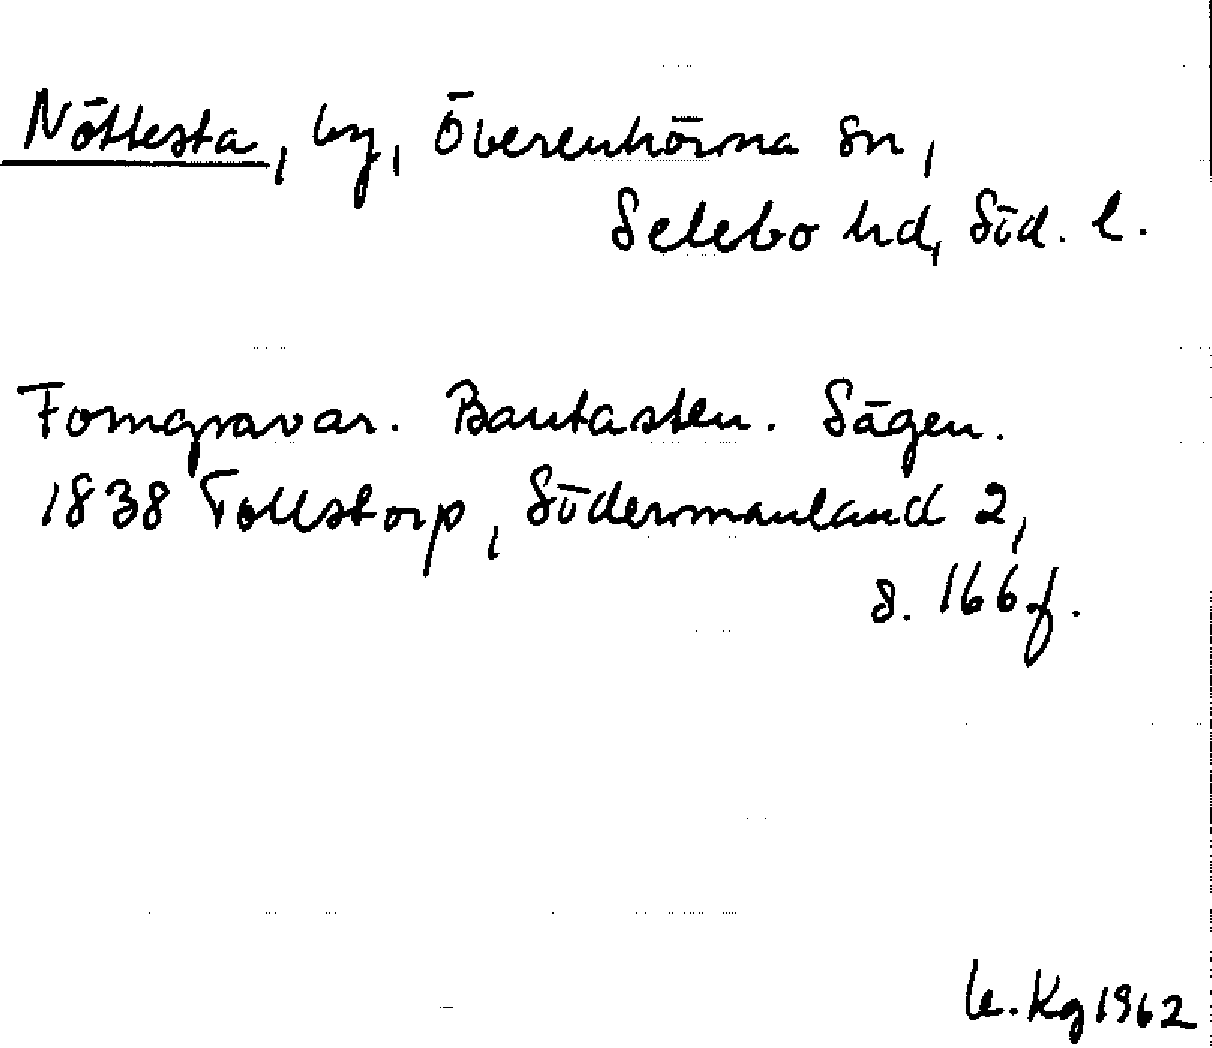 Nöttesta, by, Överenhörna sn,
Selebo hd, Söd. l.
Forngravar. Bautasten. Sägen.
1838 Tollstorp, Södermanland 2,
s. 166 f.
Kg 1962